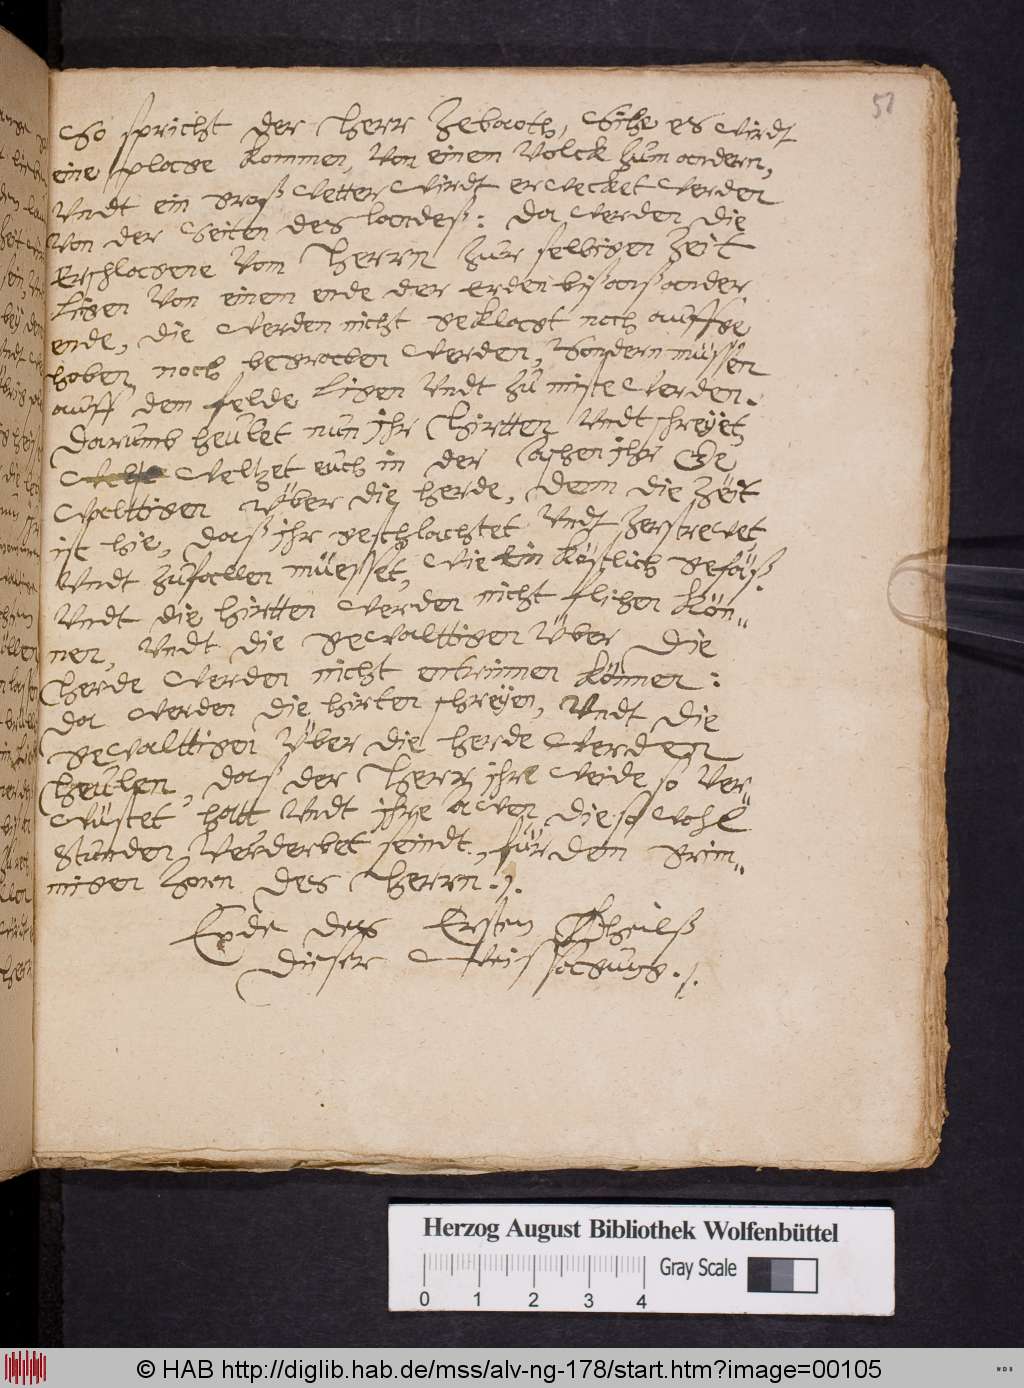 51
So spricht der Herr Zebaoth, Sihe es wirdt
eine plage kommen, Von einem Volck zum andern,
Vndt ein groß Wetter wirdt erwecket werden
Von der Seiten des landeß: da werden die
Erschlagene Vom Herrn zur selbigen Zeit
ligen Von einem ende der erden biß anß ander
ende, die werden nicht geklagt noch auffge
haben, noch begraben werden, Sondern müssen
auff dem felde ligen Vndt zu miste werden.
Darumb heulet nun ihr Hirtten Vndt schreyet,
Weltzet euch in der Aschen ihr Ge
walttigen über die herde, denn die Zeit
ist hie, daß ihr geschlachtet Vndt zerstrewet
Vndt zufallen müesset, wie ein köstlich gefäß.
Vndt die hirtten werden nicht flihen kön„
nen, Vndt die gewalttigen Über die
Herde werden nicht entrinnen können:
da werden die hirten schreyen, Vndt die
gewalttigen Über die herde werden
Heulen, daß der Herr ihre weide so Ver„
wüstet hatt Vndt ihre awen die so wohl
stunden Verderbet seindt, für dem grim„
migen Zorn des Herrn./.
Ende des Ersten Theilß
dieser Weissagung./.
Herzog August Bibliothek Wolfenbüttel
Gray Scale
0 1 2 3 4
© HAB http://diglib.hab.de/mss/alv-ng-178/start.htm?image=00105